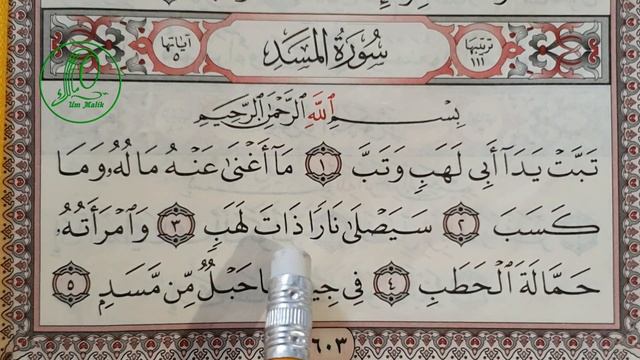 ترتيبها ١١١ سُورَةُ المَسَدِ آياتها ٥
Um Malik
بِسْمِ اللَّهِ الرَّحْمَٰنِ الرَّحِيمِ
تَبَّتْ يَدَآ أَبِى لَهَبٍ وَتَبَّ ١ مَآ أَغْنَىٰ عَنْهُ مَالُهُۥ وَمَا
كَسَبَ ٢ سَيَصْلَىٰ نَارًا ذَاتَ لَهَبٍ ٣ وَٱمْرَأَتُهُۥ
حَمَّالَةَ ٱلْحَطَبِ ٤ فِى حَبْلٌ مِّن مَّسَدٍۭ ٥
٦٠٣